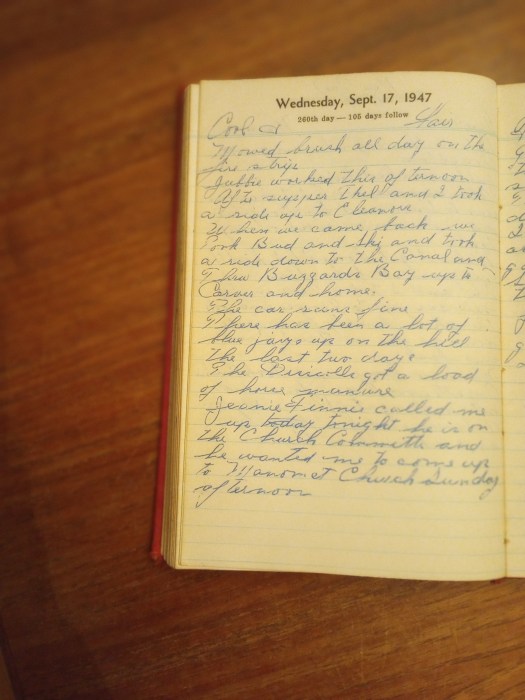 Wednesday, Sept. 17, 1947
260th day — 105 days follow
Cool & Fair
Mowed brush all day on the
fire strip
Jubbie worked this afternoon
After supper Thel and I took
a ride up to Eleanors.
When we came back we
took Bud and Ski and took
a ride down to the Canal and
Thru Buzzards Bay up to
Carver and home.
The car runs fine
There has been a lot of
blue jays up on the hill
the last two days
The Driscolls got a load
of horse manure
Jeanie Finnis called me
up today tonight he is on
the Church Committe and
he wanted me to come up
to Manomet Church Sunday
afternoon